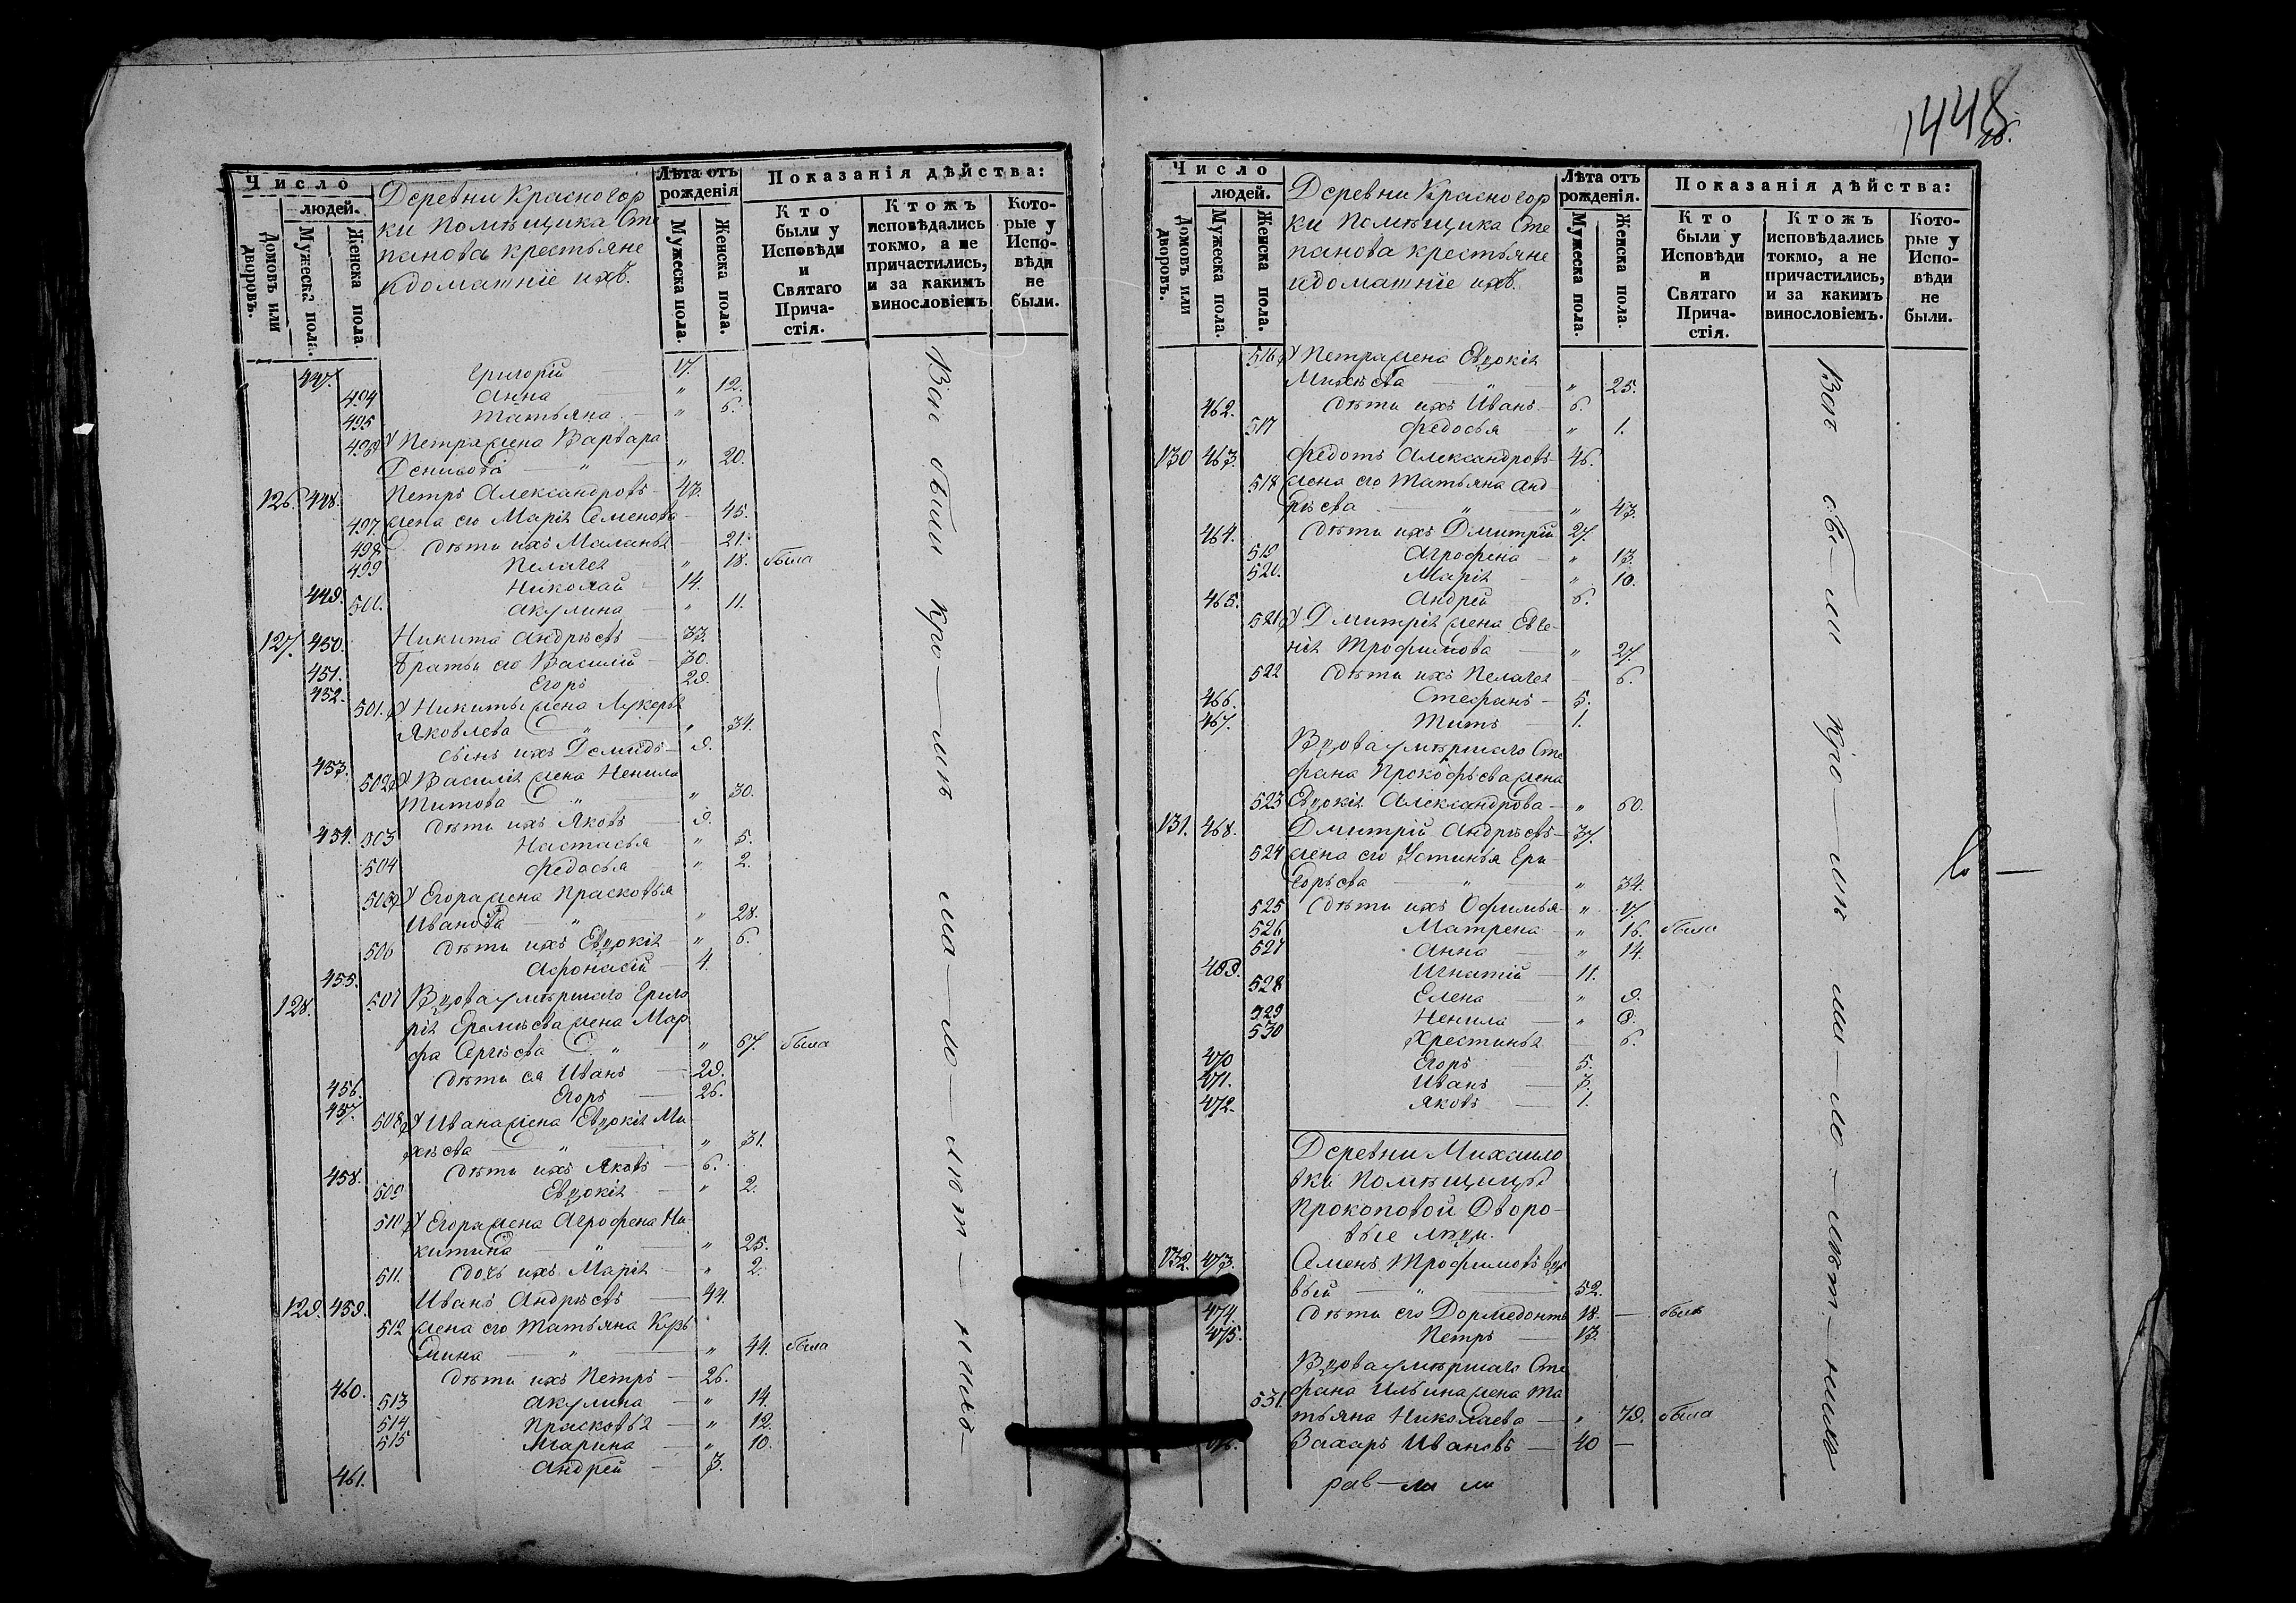 1448
об.
Число
людей.
Домовъ или дворовъ.
Мужеска пола.
Женска пола.
Деревни Красногор
ки Помѣщика Сте
панова крестьяне
и домашніе ихъ.
Лѣта отъ рожденія
Мужеска пола.
Женска пола.
Показанія дѣйства:
Кто были у Исповѣди и Святаго Причастія.
Ктожъ исповѣдались токмо, а не причастились, и за какимъ винословіемъ
Которые у Исповѣди не были.
447. Григорій — 17.
494 Анна — " 12.
495 Татьяна — " 6.
496 У Петра жена Варвара
Денисова — " — " 20.
126. 448. Петръ Александровъ — 43.
497. жена его Марія Семенова — 45.
498 Дѣти ихъ Маланья — 21.
499 Пелагея — " 18. была
449. Николай — 14.
500. Акулина — " 11.
127. 450. Никита Андрѣевъ — 33.
451. Братья его Василій — 30.
452. Егоръ 29.
501. У Никиты жена Лукерья
Яковлева — " — " 34.
453. сынъ ихъ Демидъ — 9.
502 У Василія жена Ненила
Титова — " — " 30.
454. Дѣти ихъ Яковъ — 9.
503 Настасья — " 5.
504 Федосья " 2.
505 У Егора жена Прасковья
Иванова — " " 28.
506 Дѣти ихъ Евдокія — " 6.
455. Афонасій — 4.
128. 507 Вдова умершаго Григо
рія Еремѣева жена Мар
фа Сергѣева — " — " 67. была
456. Дѣти ея Иванъ — 29.
457. Егоръ — 26.
508 У Ивана жена Евдокія Ми
хѣева — " — " 31.
458. Дѣти ихъ Яковъ — 6.
509 Евдокія — " 2.
510 У Егора жена Агрофена Ни
китина — " — " 25.
511. дочь ихъ Марія — " 2.
129. 459. Иванъ Андрѣевъ — 44.
512 жена его Татьяна Кузь
мина — " — " 44. была
460. Дѣти ихъ Петръ — 26.
513 Акулина — " 14.
514 Прасковья — " 12.
515 Марина — " 10.
461. Андрей — 3.
Вси были кро—мѣ ма—ло—лѣт—нихъ—
Число
людей.
Домовъ или дворовъ.
Мужеска пола.
Женска пола.
Деревни Красногор
ки Помѣщика Сте
панова крестьяне
и домашніе ихъ.
Лѣта отъ рожденія.
Мужеска пола.
Женска пола.
Показанія дѣйства:
Кто были у Исповѣди и Святаго Причастія.
Ктожъ исповѣдались токмо, а не причастились, и за какимъ винословіемъ.
Которые у Исповѣди не были.
516 У Петра жена Евдокія
Михѣева — " — " 25.
462. Дѣти ихъ Иванъ — 6.
517 Федосья — " 1.
130 463. Федотъ Александровъ — 46.
518 жена его Татьяна Анд
рѣева — " — " 43.
464. Дѣти ихъ Дмитрій 27.
519 Агрофена — " 13.
520. Марія — " 10.
465. Андрей — 6.
521 У Дмитрія жена Евге-
нія Трофимова — " 27.
522 Дѣти ихъ Пелагея — 6.
466. Стефанъ — 5.
467. Титъ — 1.
Вдова умершаго Сте
фана Прокофьева жена
523 Евдокія Александрова — " 60.
131. 468. Дмитрій Андрѣевъ — 37.
524 жена его Устинья Гри
горьева — " — " 34.
525 Дѣти ихъ Офимья — " 17.
526 Матрена — " 16. была
527 Анна — " 14.
469. Игнатій — 11.
528 Елена — " 9.
529 Ненила — " 8.
530 Хрестинья 6.
470 Егоръ — 5.
471. Иванъ — 3.
472. Яковъ — 1.
Деревни Михайло
вки Помѣщицы
Прокоповой Дворо-
вые люди.
132. 473. Семенъ Трофимовъ вдо
вый — " — 52.
474. Дѣти его Дормедонтъ 18. — былъ
475. Петръ — 13.
Вдова умершаго Сте
531. фана Ильина жена Та
тьяна Николаева — " 79. была
Захаръ Ивановъ — 40 —
Вси бы—ли кро—мѣ ма—ло—лѣт—нихъ